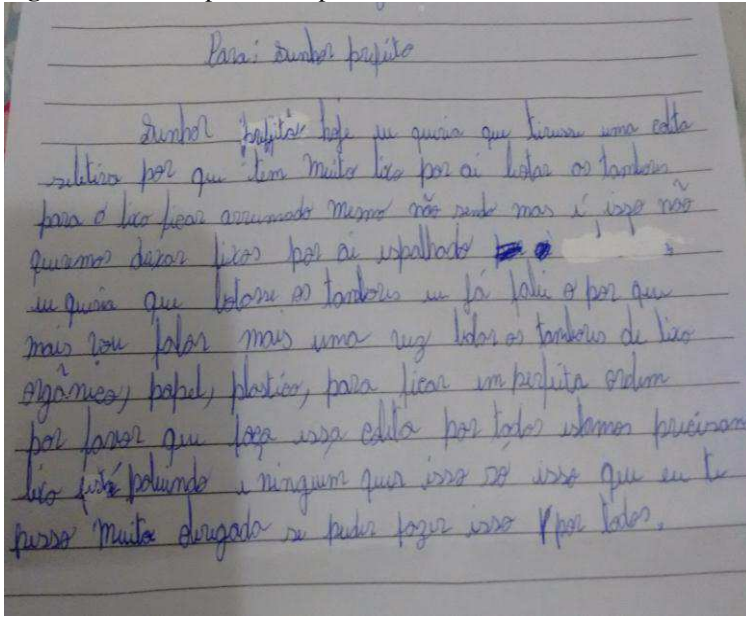 Para: Senhor prefeito
Senhor prefeito hoje eu queria que tivesse uma colta
seletiva por que tem muito lixo por ai botar os tambores
para o lixo ficar arrumado mesmo não sendo mas é isso não
queremos deixar lixos por ai espalhado
eu queria que botasse os tambores eu já falei o por que
mais vou falar mais uma vez botar os tambores de lixo
orgânico, papel, plastico, para ficar em perfeita ordem
por favor que faça essa colta por todos estamos precisan
lixo está poluindo e ninguem quer isso só isso que eu te
pesso muito obrigado se puder fazer isso por todos.